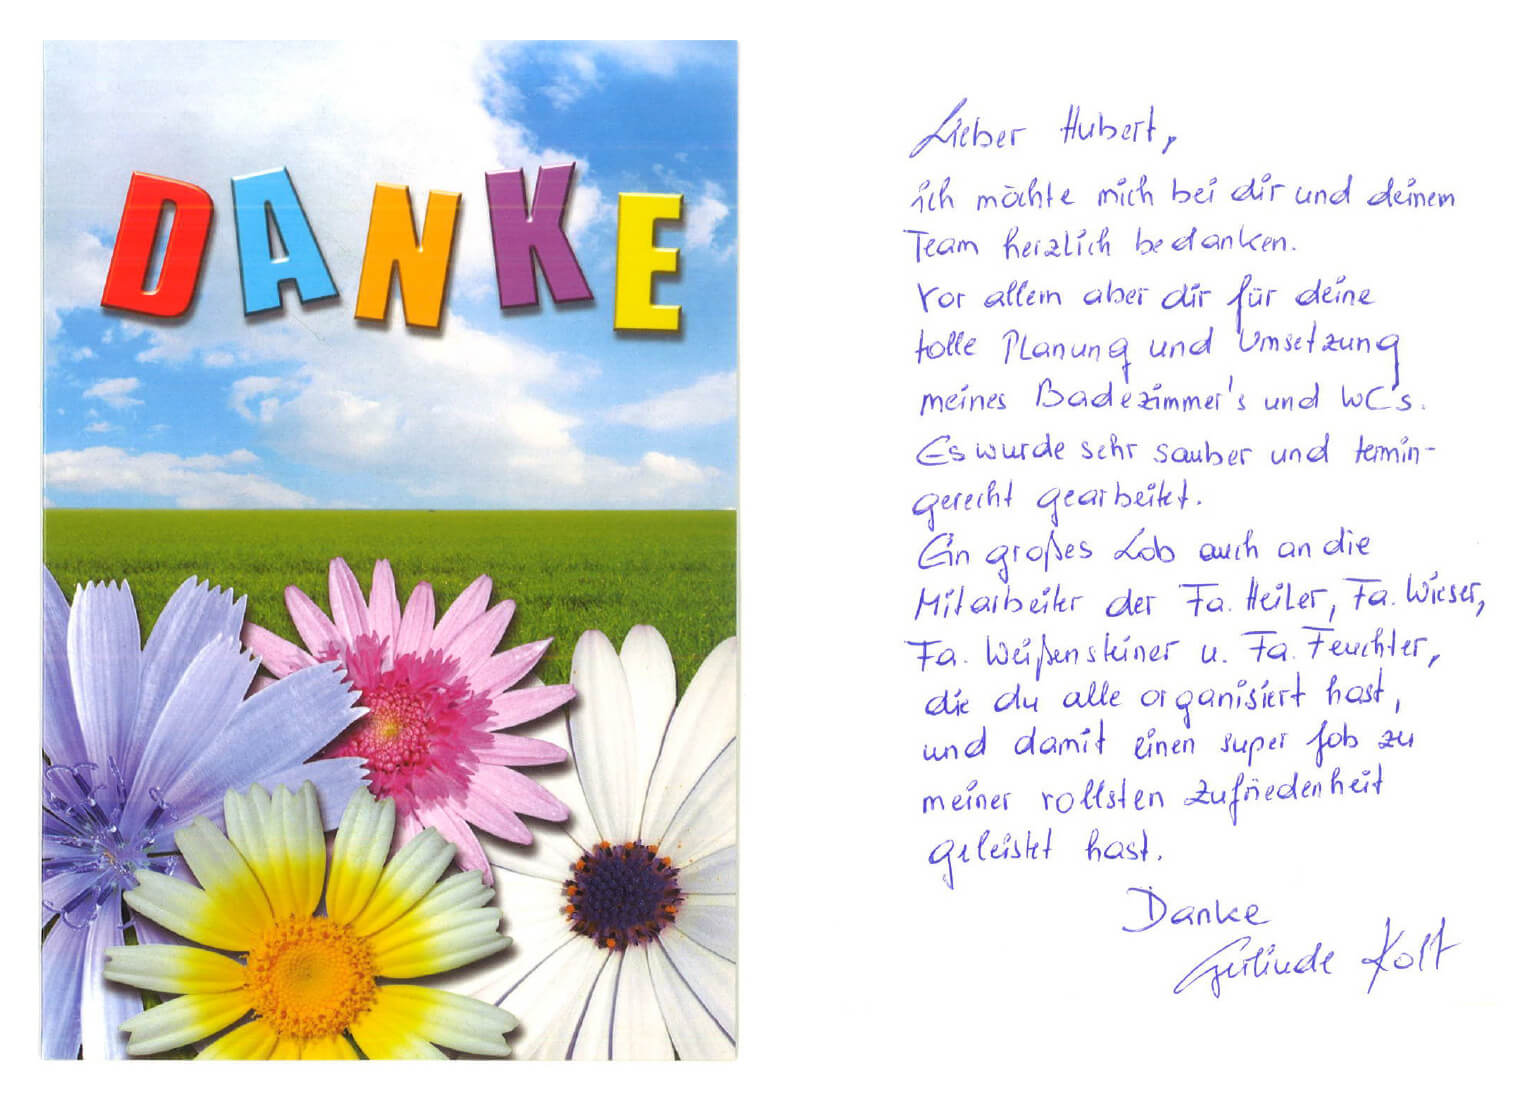 DANKE
Lieber Hubert,
ich möchte mich bei dir und deinem
Team herzlich bedanken.
Vor allem aber dir für deine
tolle Planung und Umsetzung
meines Badezimmer's und WC's.
Es wurde sehr sauber und termin-
gerecht gearbeitet.
Ein großes Lob auch an die
Mitarbeiter der Fa. Heiler, Fa. Wieser,
Fa. Weißensteiner u. Fa. Feuchter,
die du alle organisiert hast,
und damit einen super Job zu
meiner vollsten Zufriedenheit
geleistet hast.
Danke
Gerlinde